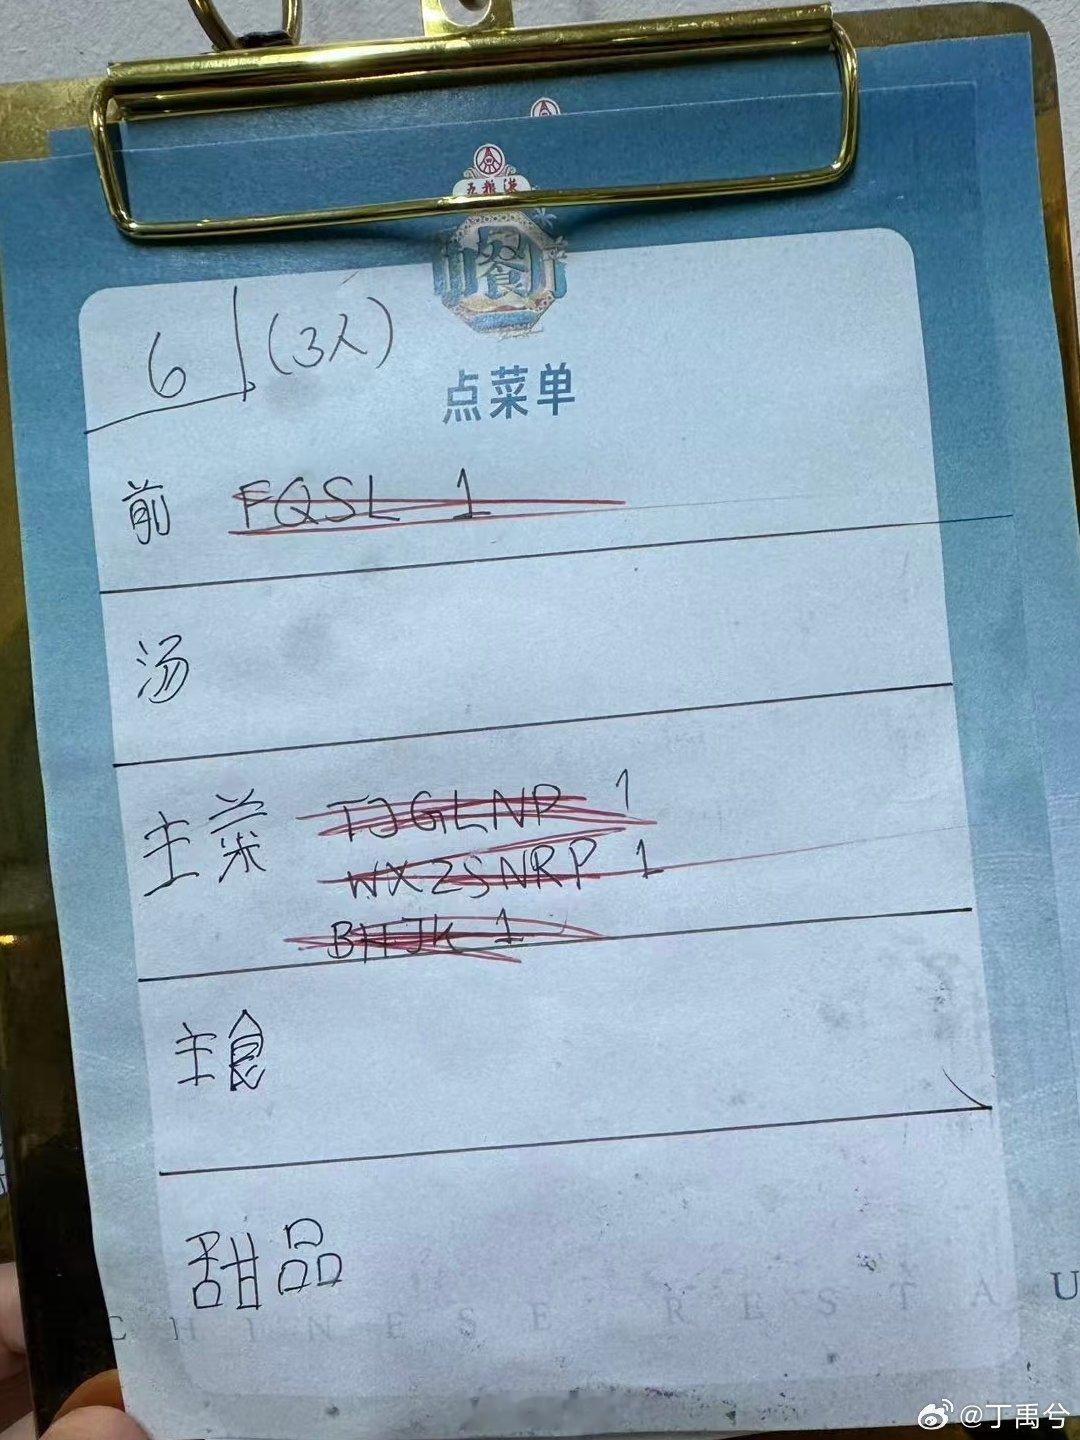 五粮液
6 (3人)
点菜单
前 FQSL 1
汤
主菜 TJGLNP 1
WXZSNRP 1
BHTJK 1
主食
甜品
CHINESE RESTAU
@丁禹兮